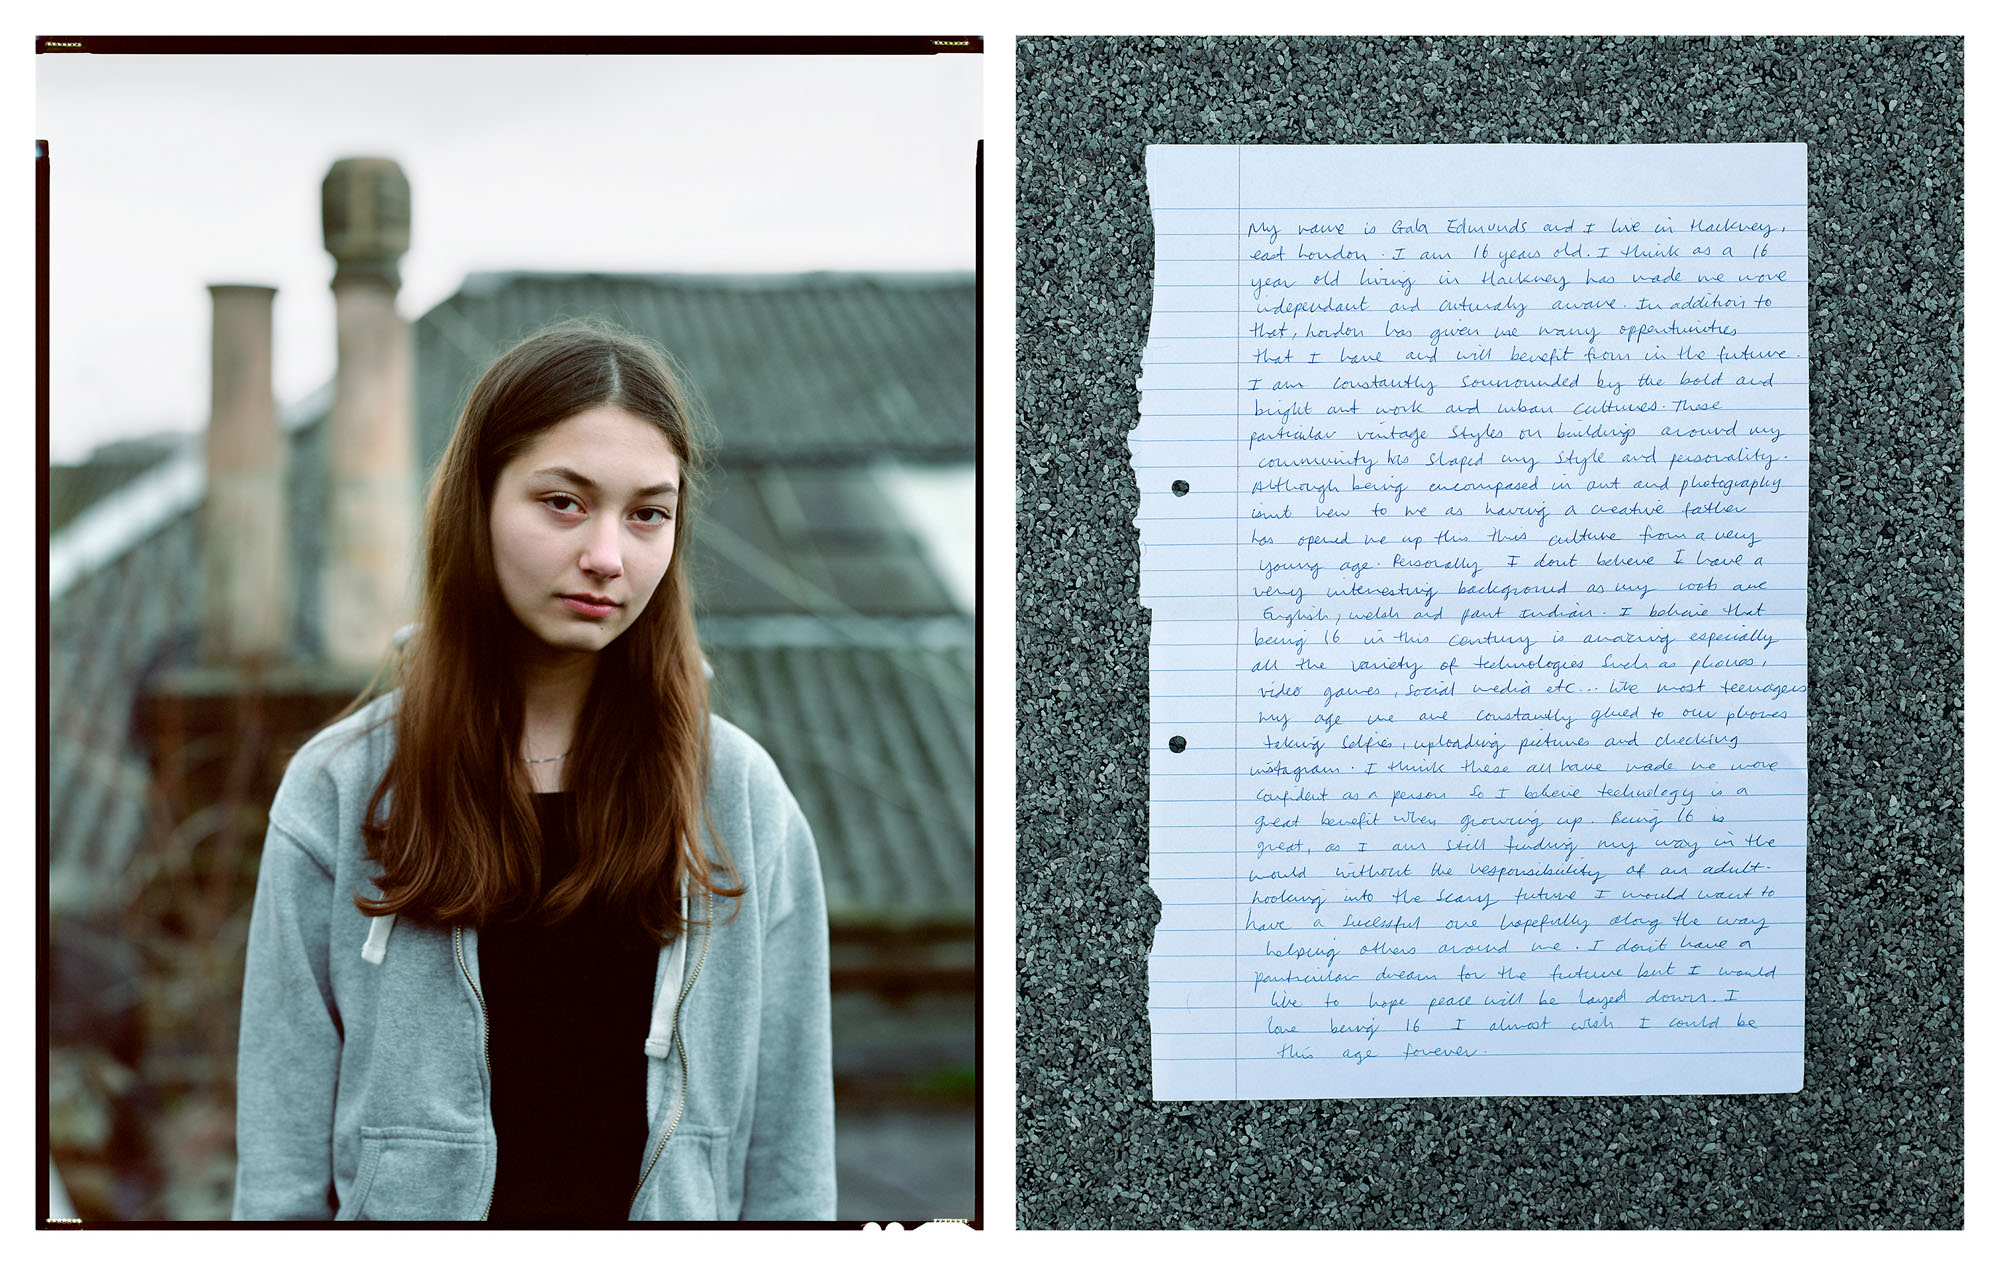 My name is Gala Edmunds and I live in Hackney,
east London. I am 16 years old. I think as a 16
year old living in Hackney has made me more
independant and culturaly aware. In addition to
that, London has given me many oppertunities
that I have and will benefit from in the future.
I am constantly sourrounded by the bold and
bright art work and urban cultures. These
particular vintage styles on buildings around my
community has shaped my style and personality.
Although being encompased in art and photography
isnt new to me as having a creative father
has opened me up this this culture from a very
young age. Personally I dont believe I have a
very interesting background as my roots are
English, welsh and part Indian. I believe that
being 16 in this century is amazing especially
all the variety of technologies such as phones,
video games, social media etc... like most teenagers
my age we are constantly glued to our phones
taking selfies, uploading pictures and checking
instagram. I think these all have made me more
confident as a person so I believe technology is a
great benefit when growing up. Being 16 is
great, as I am still finding my way in the
world without the responsibility of an adult.
Looking into the scary future I would want to
have a sucessful one hopefully along the way
helping others around me. I don't have a
particular dream for the future but I would
like to hope peace will be layed down. I
love being 16 I almost wish I could be
this age forever.